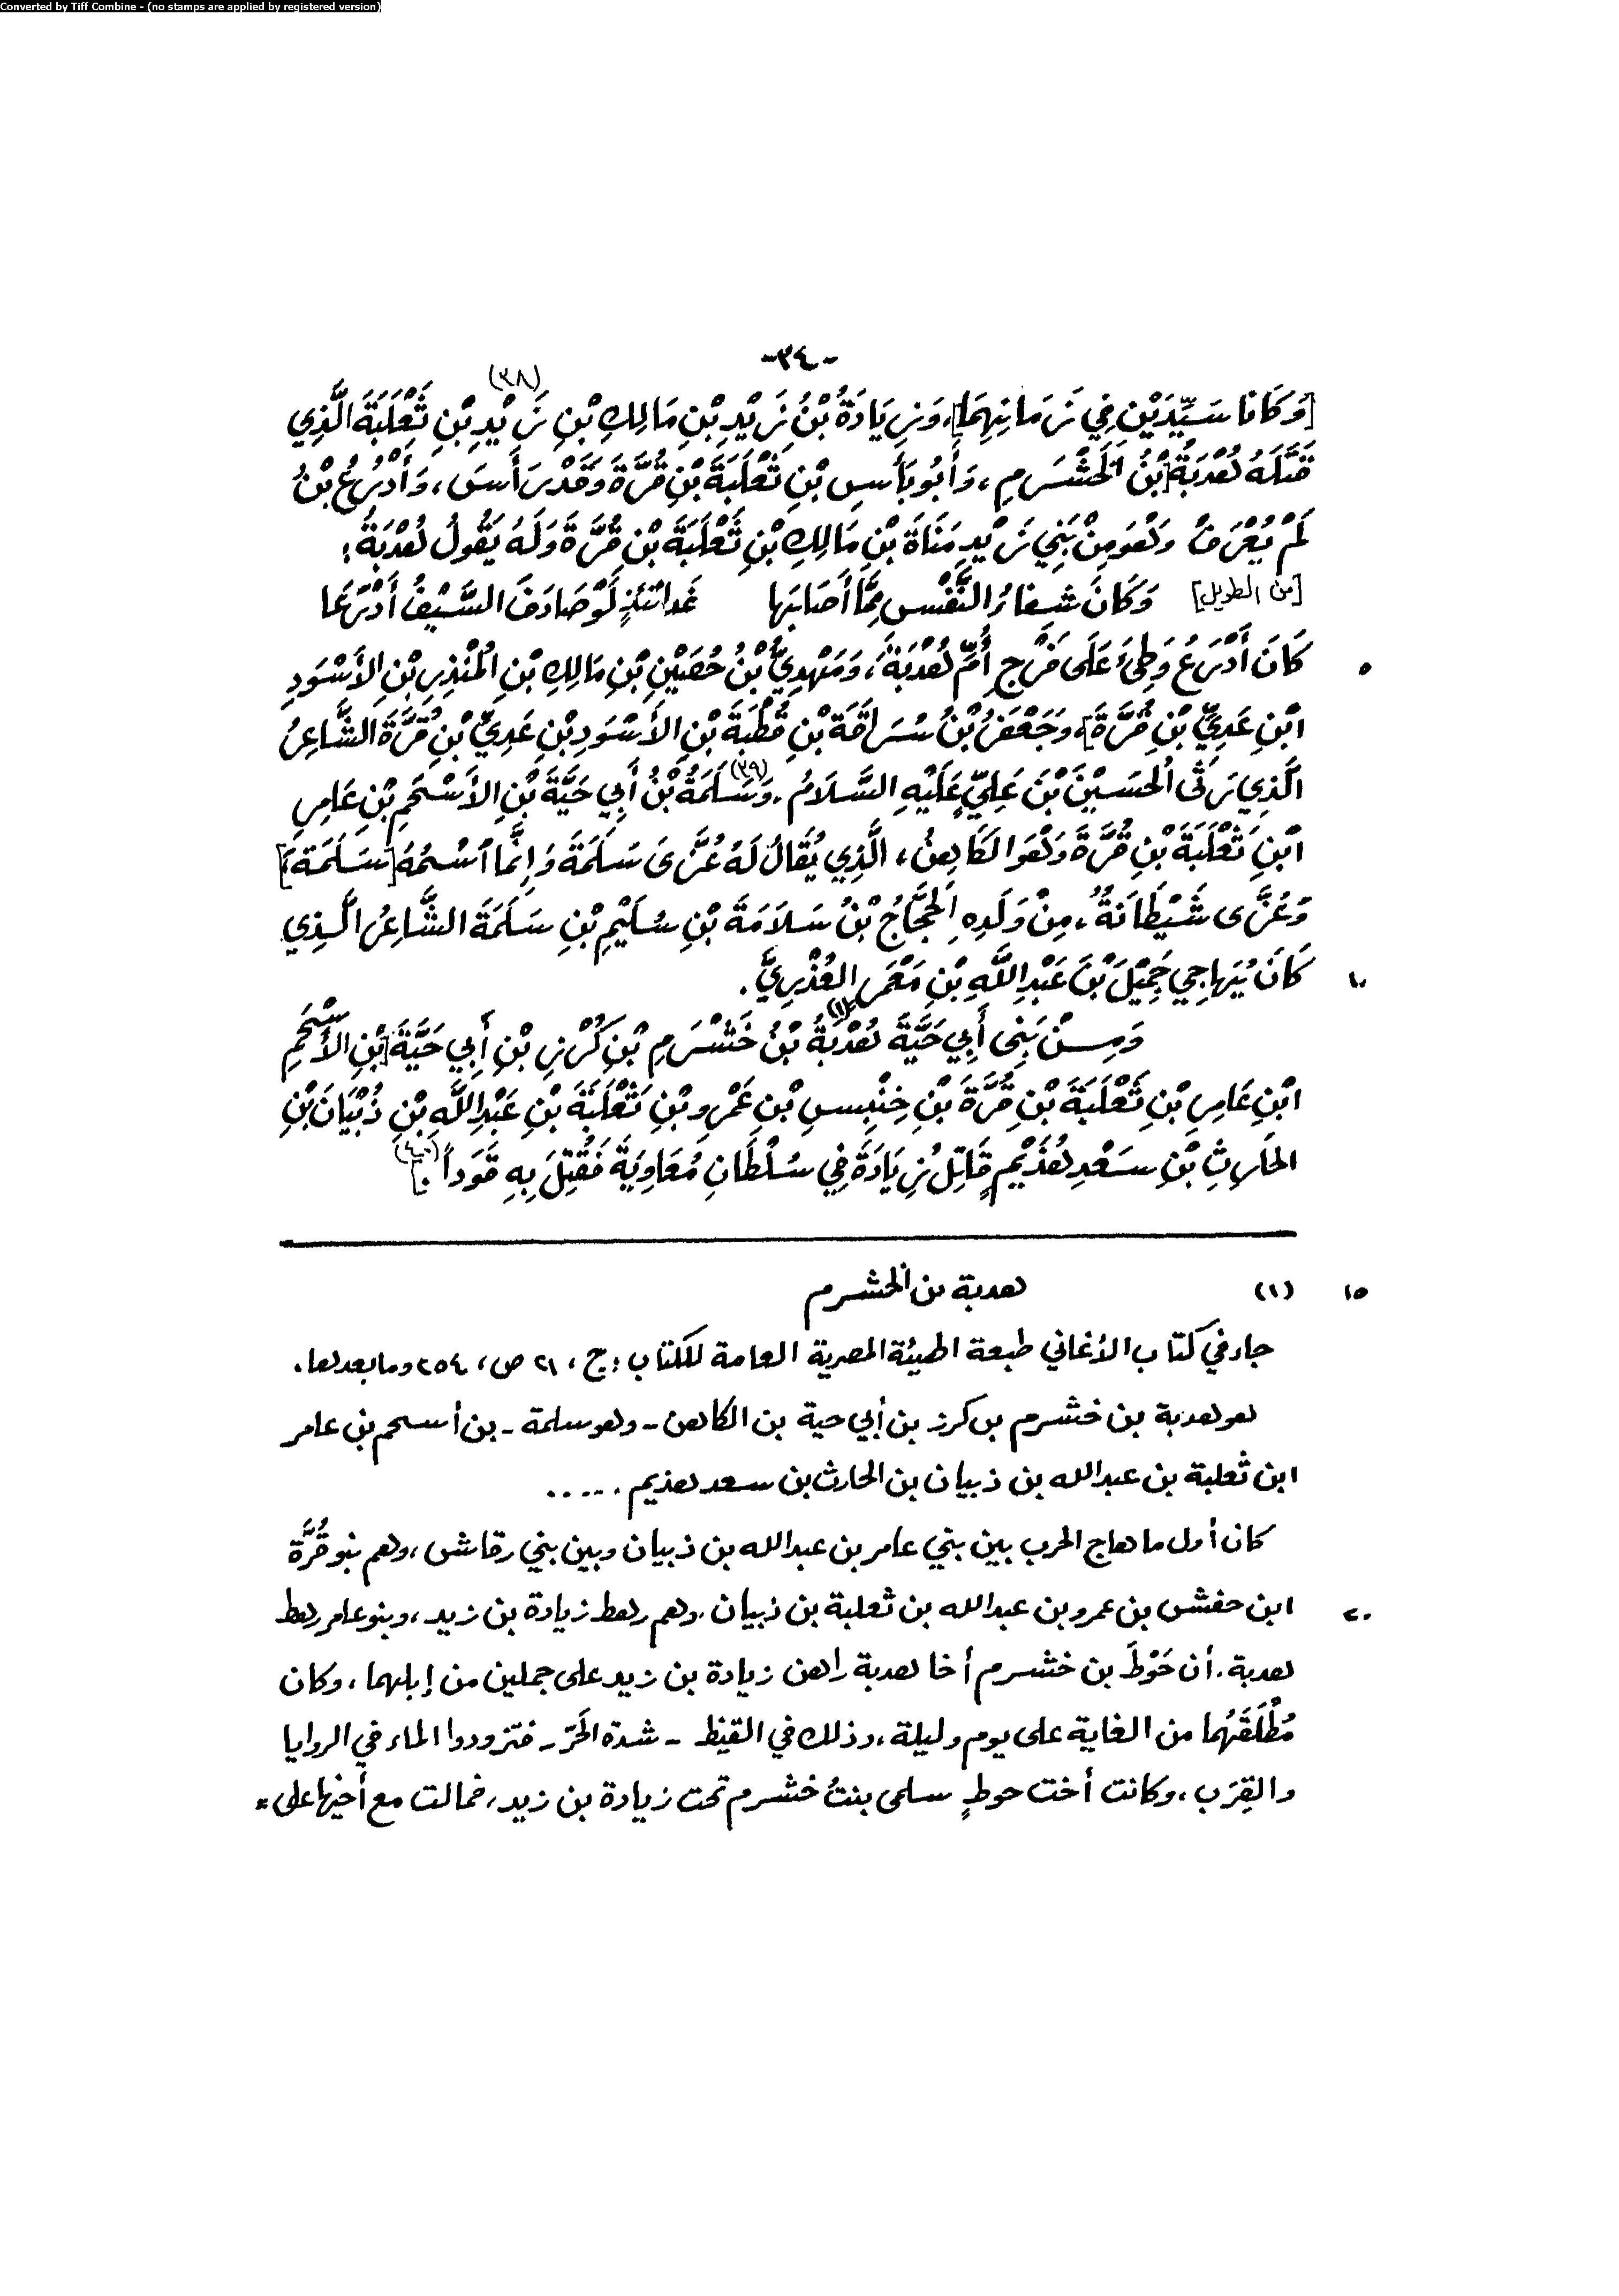 Converted by Tiff Combine - (no stamps are applied by registered version)
-٣٤-
[وَكَانَا سَيِّدَيْنِ فِي زَمَانِهِمَا]، وَزِيَادَةُ بْنُ زَيْدِ بْنِ مَالِكِ بْنِ زَيْدِ بْنِ ثَعْلَبَةَ الَّذِي (٣٨)
قَتَلَهُ هُدْبَةُ [بْنُ الْخَشْرَمِ، وَأَبُو بَأْسِ بْنِ ثَعْلَبَةَ بْنِ قُرَّةَ وَقَدْ رَأَسَ، وَأَدْرُعُ بْنُ
لَمْ يُعْرَفْ وَهُوَ مِنْ بَنِي زَيْدِ مَنَاةَ بْنِ مَالِكِ بْنِ ثَعْلَبَةَ بْنِ قُرَّةَ وَلَهُ يَقُولُ هُدْبَةُ:
[من الطويل] وَكَانَ شِفَاءُ النَّفْسِ مِمَّا أَصَابَهَا غَدَاتَئِذٍ لَوْ صَادَفَ السَّيْفُ أَدْرَعَا
٥ كَانَ أَدْرَعُ وَطِئَ عَلَى فَرْجِ أُمِّ هُدْبَةَ، وَمَهْدِيُّ بْنُ حُصَيْنِ بْنِ مَالِكِ بْنِ الْمُنْذِرِ بْنِ الأَسْوَدِ
ابْنِ عَدِيِّ بْنِ قُرَّةَ]، وَجَعْفَرُ بْنُ سُرَاقَةَ بْنِ قُطْبَةَ بْنِ الأَسْوَدِ بْنِ عَدِيِّ بْنِ قُرَّةَ الشَّاعِرُ
الَّذِي رَثَى الْحُسَيْنَ بْنَ عَلِيٍّ عَلَيْهِ السَّلَامُ. (٣٩) وَسَلَمَةُ بْنُ أَبِي حَيَّةَ بْنِ الأَسْحَمِ بْنِ عَامِرِ
ابْنِ ثَعْلَبَةَ بْنِ قُرَّةَ وَهُوَ الكَاهِنُ، الَّذِي يُقَالُ لَهُ عُزَّى سَلَمَةَ وَإِنَّمَا ٱسْمُهُ [سَلَمَةُ]
وَعُزَّى شَيْطَانَةٌ، مِنْ وَلَدِهِ الْحَجَّاجُ بْنُ سَلَامَةَ بْنِ سُلَيْمِ بْنِ سَلَمَةَ الشَّاعِرُ الَّذِي
١٠ كَانَ يُهَاجِي جَمِيْلَ بْنَ عَبْدِ اللَّهِ بْنِ مَعْمَرٍ العُذْرِيَّ.
وَمِنْ بَنِي أَبِي حَيَّةَ هُدْبَةُ (١) بْنُ خَشْرَمِ بْنِ كُرْزِ بْنِ أَبِي حَيَّةَ [بْنِ الأَسْحَمِ
ابْنِ عَامِرِ بْنِ ثَعْلَبَةَ بْنِ قُرَّةَ بْنِ خِنْبِسِ بْنِ عَمْرِو بْنِ ثَعْلَبَةَ بْنِ عَبْدِ اللَّهِ بْنِ ذُبْيَانَ بْنِ
الحَارِثِ بْنِ سَعْدِ هُذَيْمٍ قَاتِلُ زِيَادَةَ فِي سُلْطَانِ مُعَاوِيَةَ فَقُتِلَ بِهِ قَوَداً (٤٠)].
١٥ (١) هدبة بن الخشرم
جاء في كتاب الأغاني طبعة الهيئة المصرية العامة للكتاب: ج، ٢١ ص، ٢٥٤ وما بعدها.
هو هدبة بن خشرم بن كرز بن أبي حية بن الكاهن - وهو سلمة - بن أسحم بن عامر
ابن ثعلبة بن عبد الله بن ذبيان بن الحارث بن سعد هذيم .....
كان أول ما هاج الحرب بين بني عامر بن عبد الله بن ذبيان وبين بني رقاش، وهم بنو قُرَّة
٢٠ ابن حفش بن عمرو بن عبد الله بن ثعلبة بن ذبيان. وهم رهط زيادة بن زيد، وبنو عامر رهط
هدبة. أن حَوْطَ بن خشرم أخا هدبة راهن زيادة بن زيد على جملين من إبلهما، وكان
مُطْلَقَهُما من الغاية على يوم وليلة، وذلك في القيظ - شدة الحَرّ - فتزودوا الماء في الروايا
والقِرَب، وكانت أخت حوطٍ سلمى بنتُ خشرم تحت زيادة بن زيد، فمالت مع أخيها على =